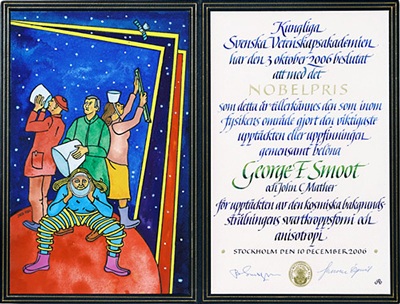 Kungliga
Svenska Vetenskapsakademien
har den 3 oktober 2006 beslutat
att med det
NOBELPRIS
som detta år tillerkännes den som inom
fysikens område gjort den viktigaste
upptäckten eller uppfinningen
gemensamt belöna
George F Smoot
och John C Mather
för upptäckten av den kosmiska bakgrunds-
strålningens svartkroppsform och
anisotropi
STOCKHOLM DEN 10 DECEMBER 2006